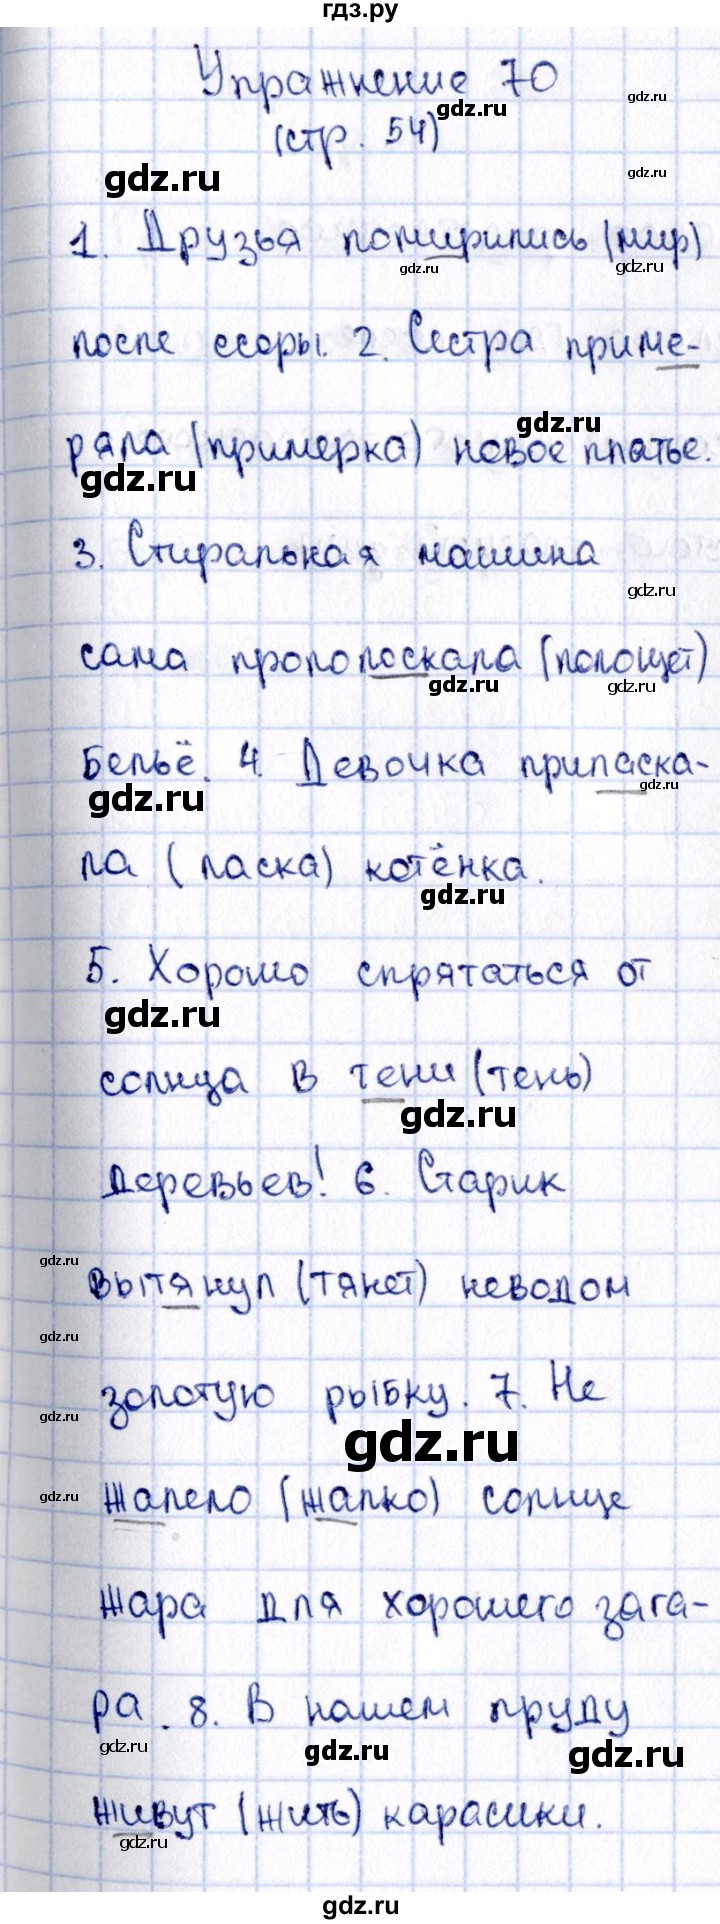 гдз.ру
Упражнение 70
gdz.ru
gdz.ru
(стр. 54)
gdz.ru
gdz.ru
1. Друзья помирились (мир)
gdz.ru
gdz.ru
после ссоры. 2. Сестра приме-
gdz.ru
ряла (примерка) новое платье.
gdz.ru
3. Стиральная машина
gdz.ru
сама прополоскала (полощет)
gdz.ru
gdz.ru
бельё. 4. Девочка приласка-
gdz.ru
gdz.ru
ла (ласка) котёнка.
gdz.ru
5. Хорошо спрятаться от
gdz.ru
солнца в тени (тень)
gdz.ru
деревьев! 6. Старик
gdz.ru
вытянул (тянет) неводом
gdz.ru
золотую рыбку. 7. Не
gdz.ru
gdz.ru
gdz.ru
жалело (жалко) солнце
жара для хорошего зага-
ра. 8. В нашем пруду
gdz.ru
gdz.ru
gdz.ru
живут (жить) карасики.
gdz.ru
gdz.ru